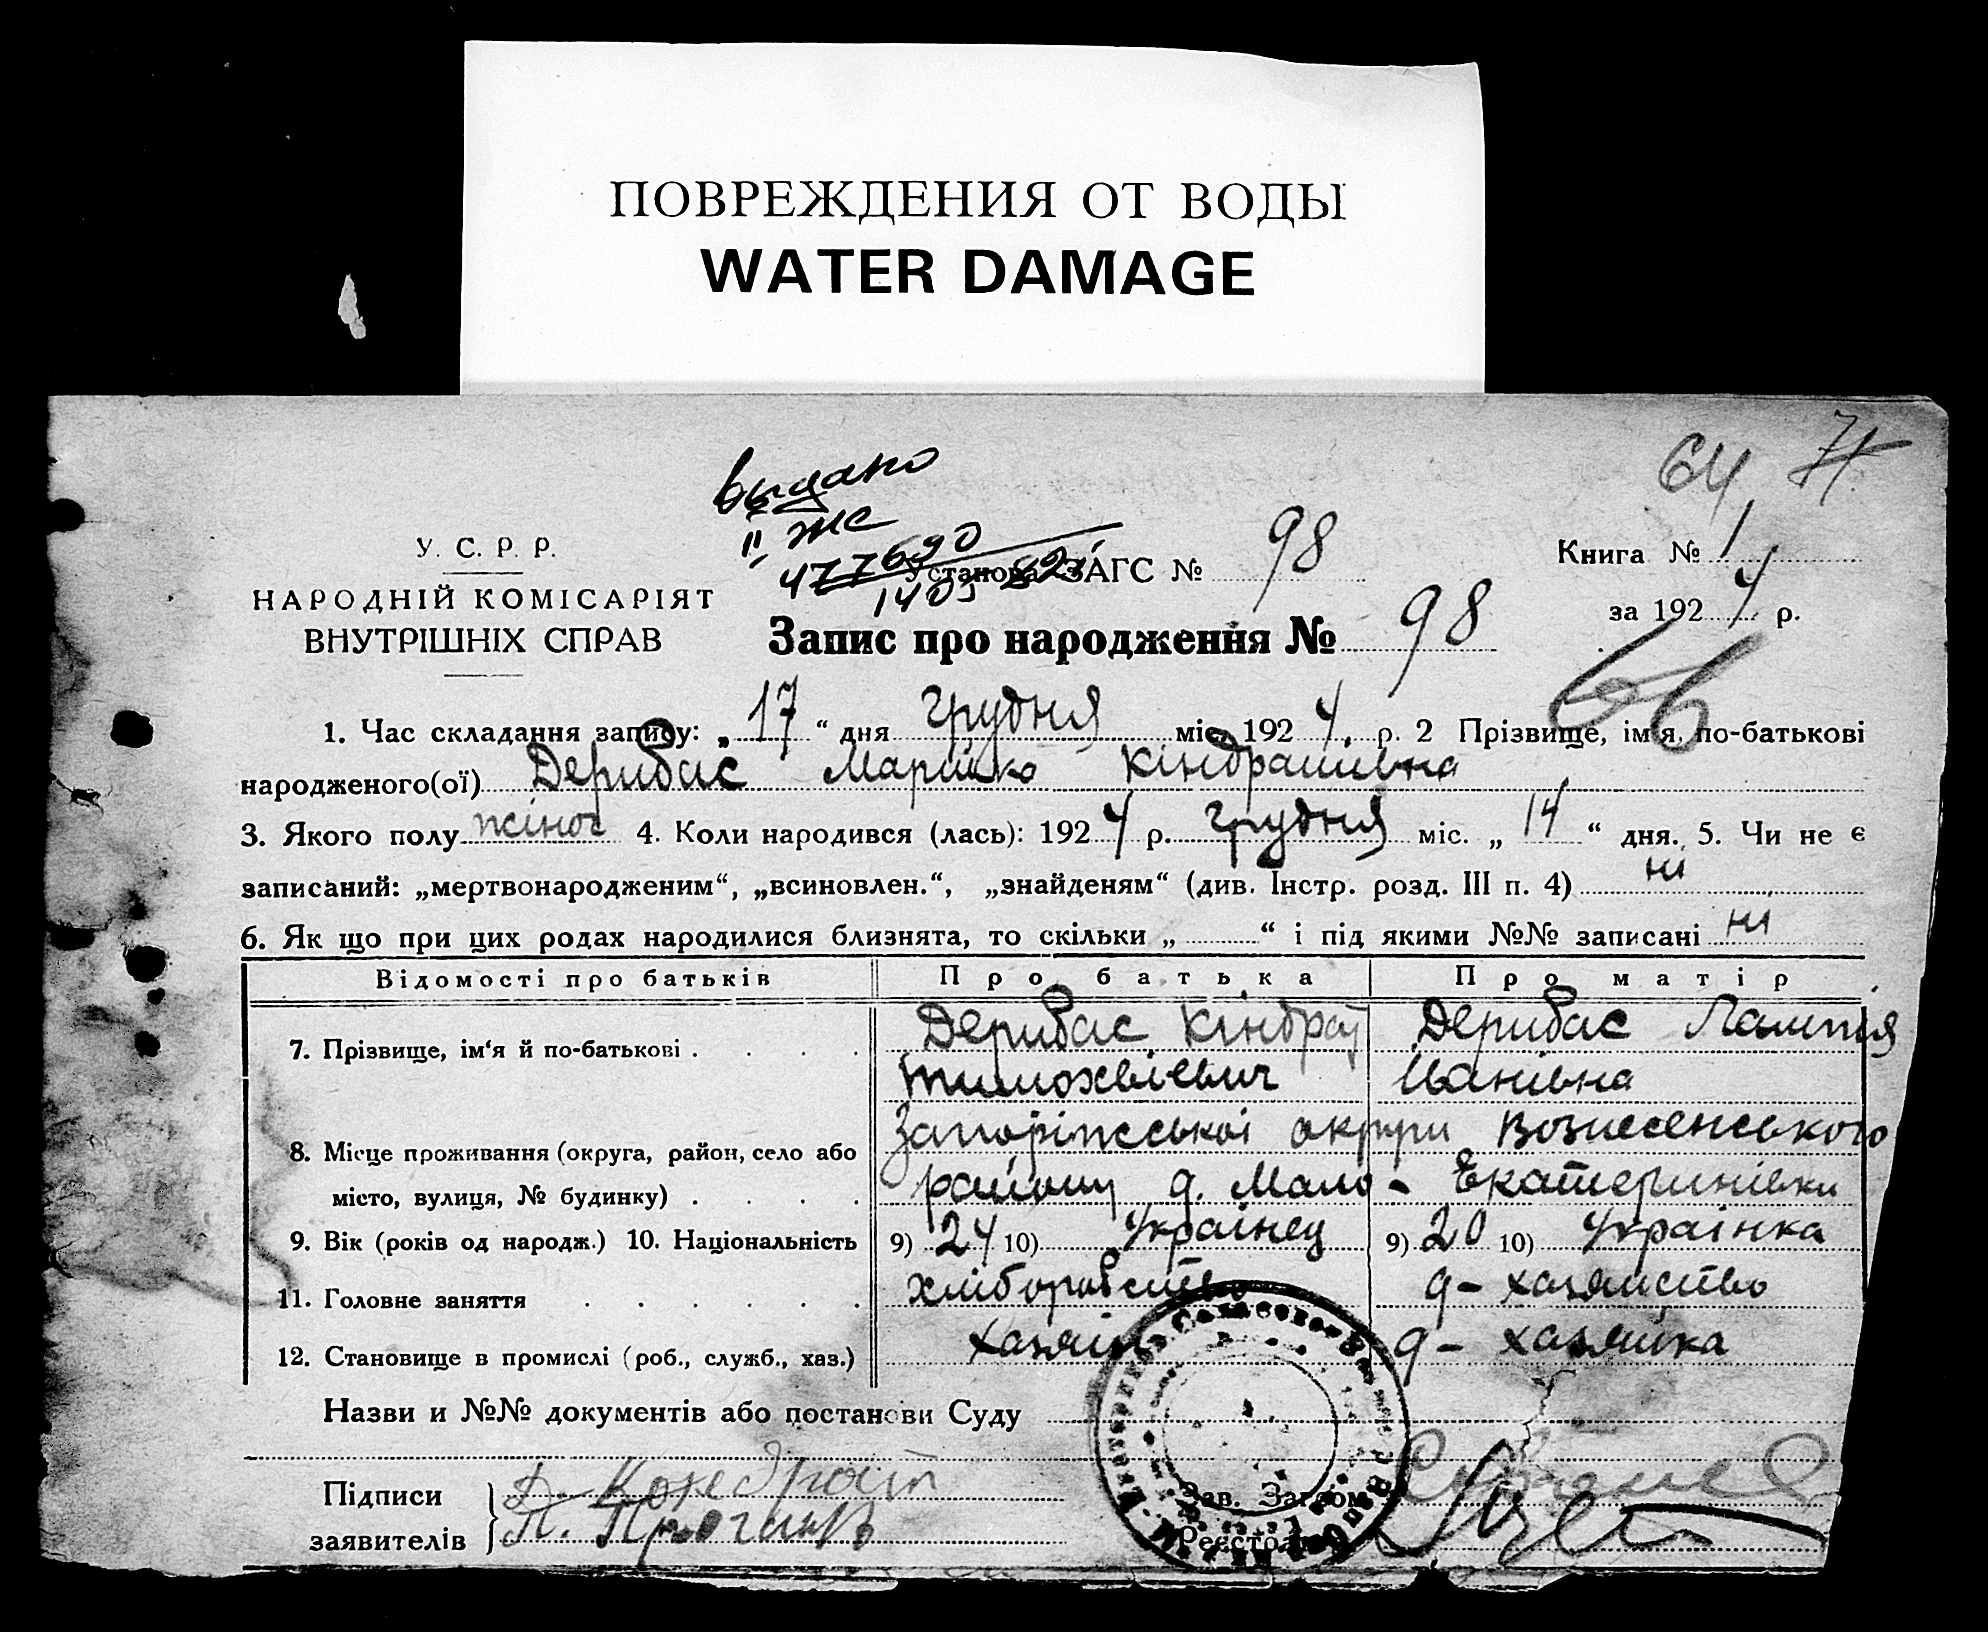 ПОВРЕЖДЕНИЯ ОТ ВОДЫ
WATER DAMAGE
64 71
выдано
II жс
477690
У. С. Р. Р.
НАРОДНІЙ КОМІСАРІЯТ
ВНУТРІШНІХ СПРАВ
Установа ЗАГС № 98
Книга № 1
за 1924 р.
Запис про народження № 98
66
1. Час складання запису: „17“ дня грудня міс. 1924 р. 2 Прізвище, ім'я, по-батькові
народженого(ої) Дерибас Марійка Кіндратівна
3. Якого полу жіноч 4. Коли народився (лась): 1924 р. грудня міс. „14“ дня. 5. Чи не є
записаний: „мертвонародженим“, „всиновлен.“, „знайденям“ (див. Інстр. розд. III п. 4) ні
6. Як що при цих родах народилися близнята, то скільки „ “ і під якими №№ записані ні
Відомості про батьків Про батька Про матір
7. Прізвище, ім'я й по-батькові . . . . Дерибас Кіндрат Дерибас Лампія
Тимохвієвич Іванівна
8. Місце проживання (округа, район, село або Запоріжської округи Вознесенського
місто, вулиця, № будинку) . . . . району д. Мало-Екатеринівки
9. Вік (років од народж.) 10. Національність 9) 24 10) Українец 9) 20 10) Українка
11. Головне заняття . . . . . . хліборобство д-хазяйство
12. Становище в промислі (роб., служб., хаз.) хазяїн д-хазяйка
Назви и №№ документів або постанови Суду
Підписи Д. Кондрат
заявителів П.
Зав. Загсом
Реєстра